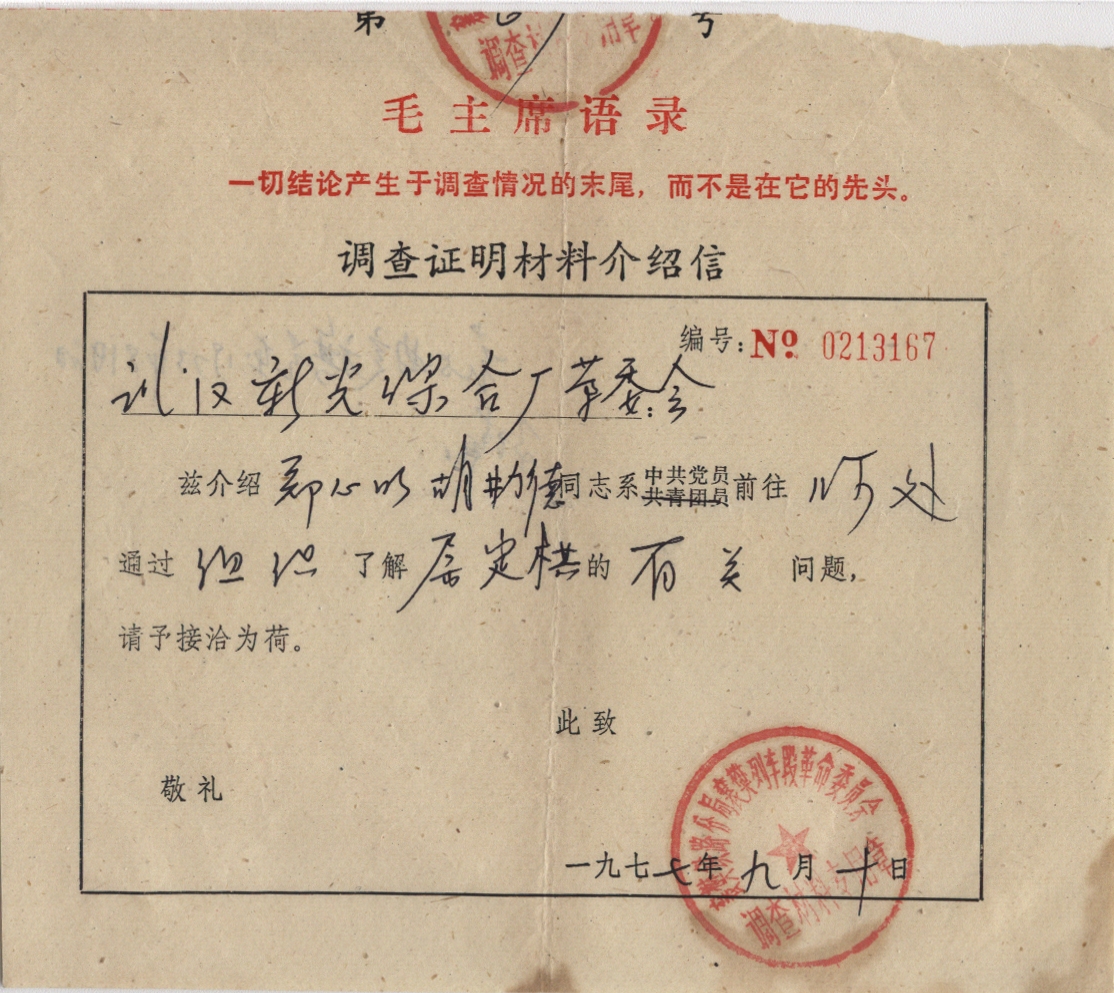 第 号
调查
毛主席语录
一切结论产生于调查情况的末尾，而不是在它的先头。
调查证明材料介绍信
编号：No 0213167
武汉新光综合厂革委会：
兹介绍 郑心明 胡勤德 同志系 中共党员 共青团员 前往 你处
通过 组织 了解 屈定栱 的 有关 问题，
请予接洽为荷。
此致
敬礼
局襄樊列车段革命委员会
调查材料专用章
一九七七年九月十日